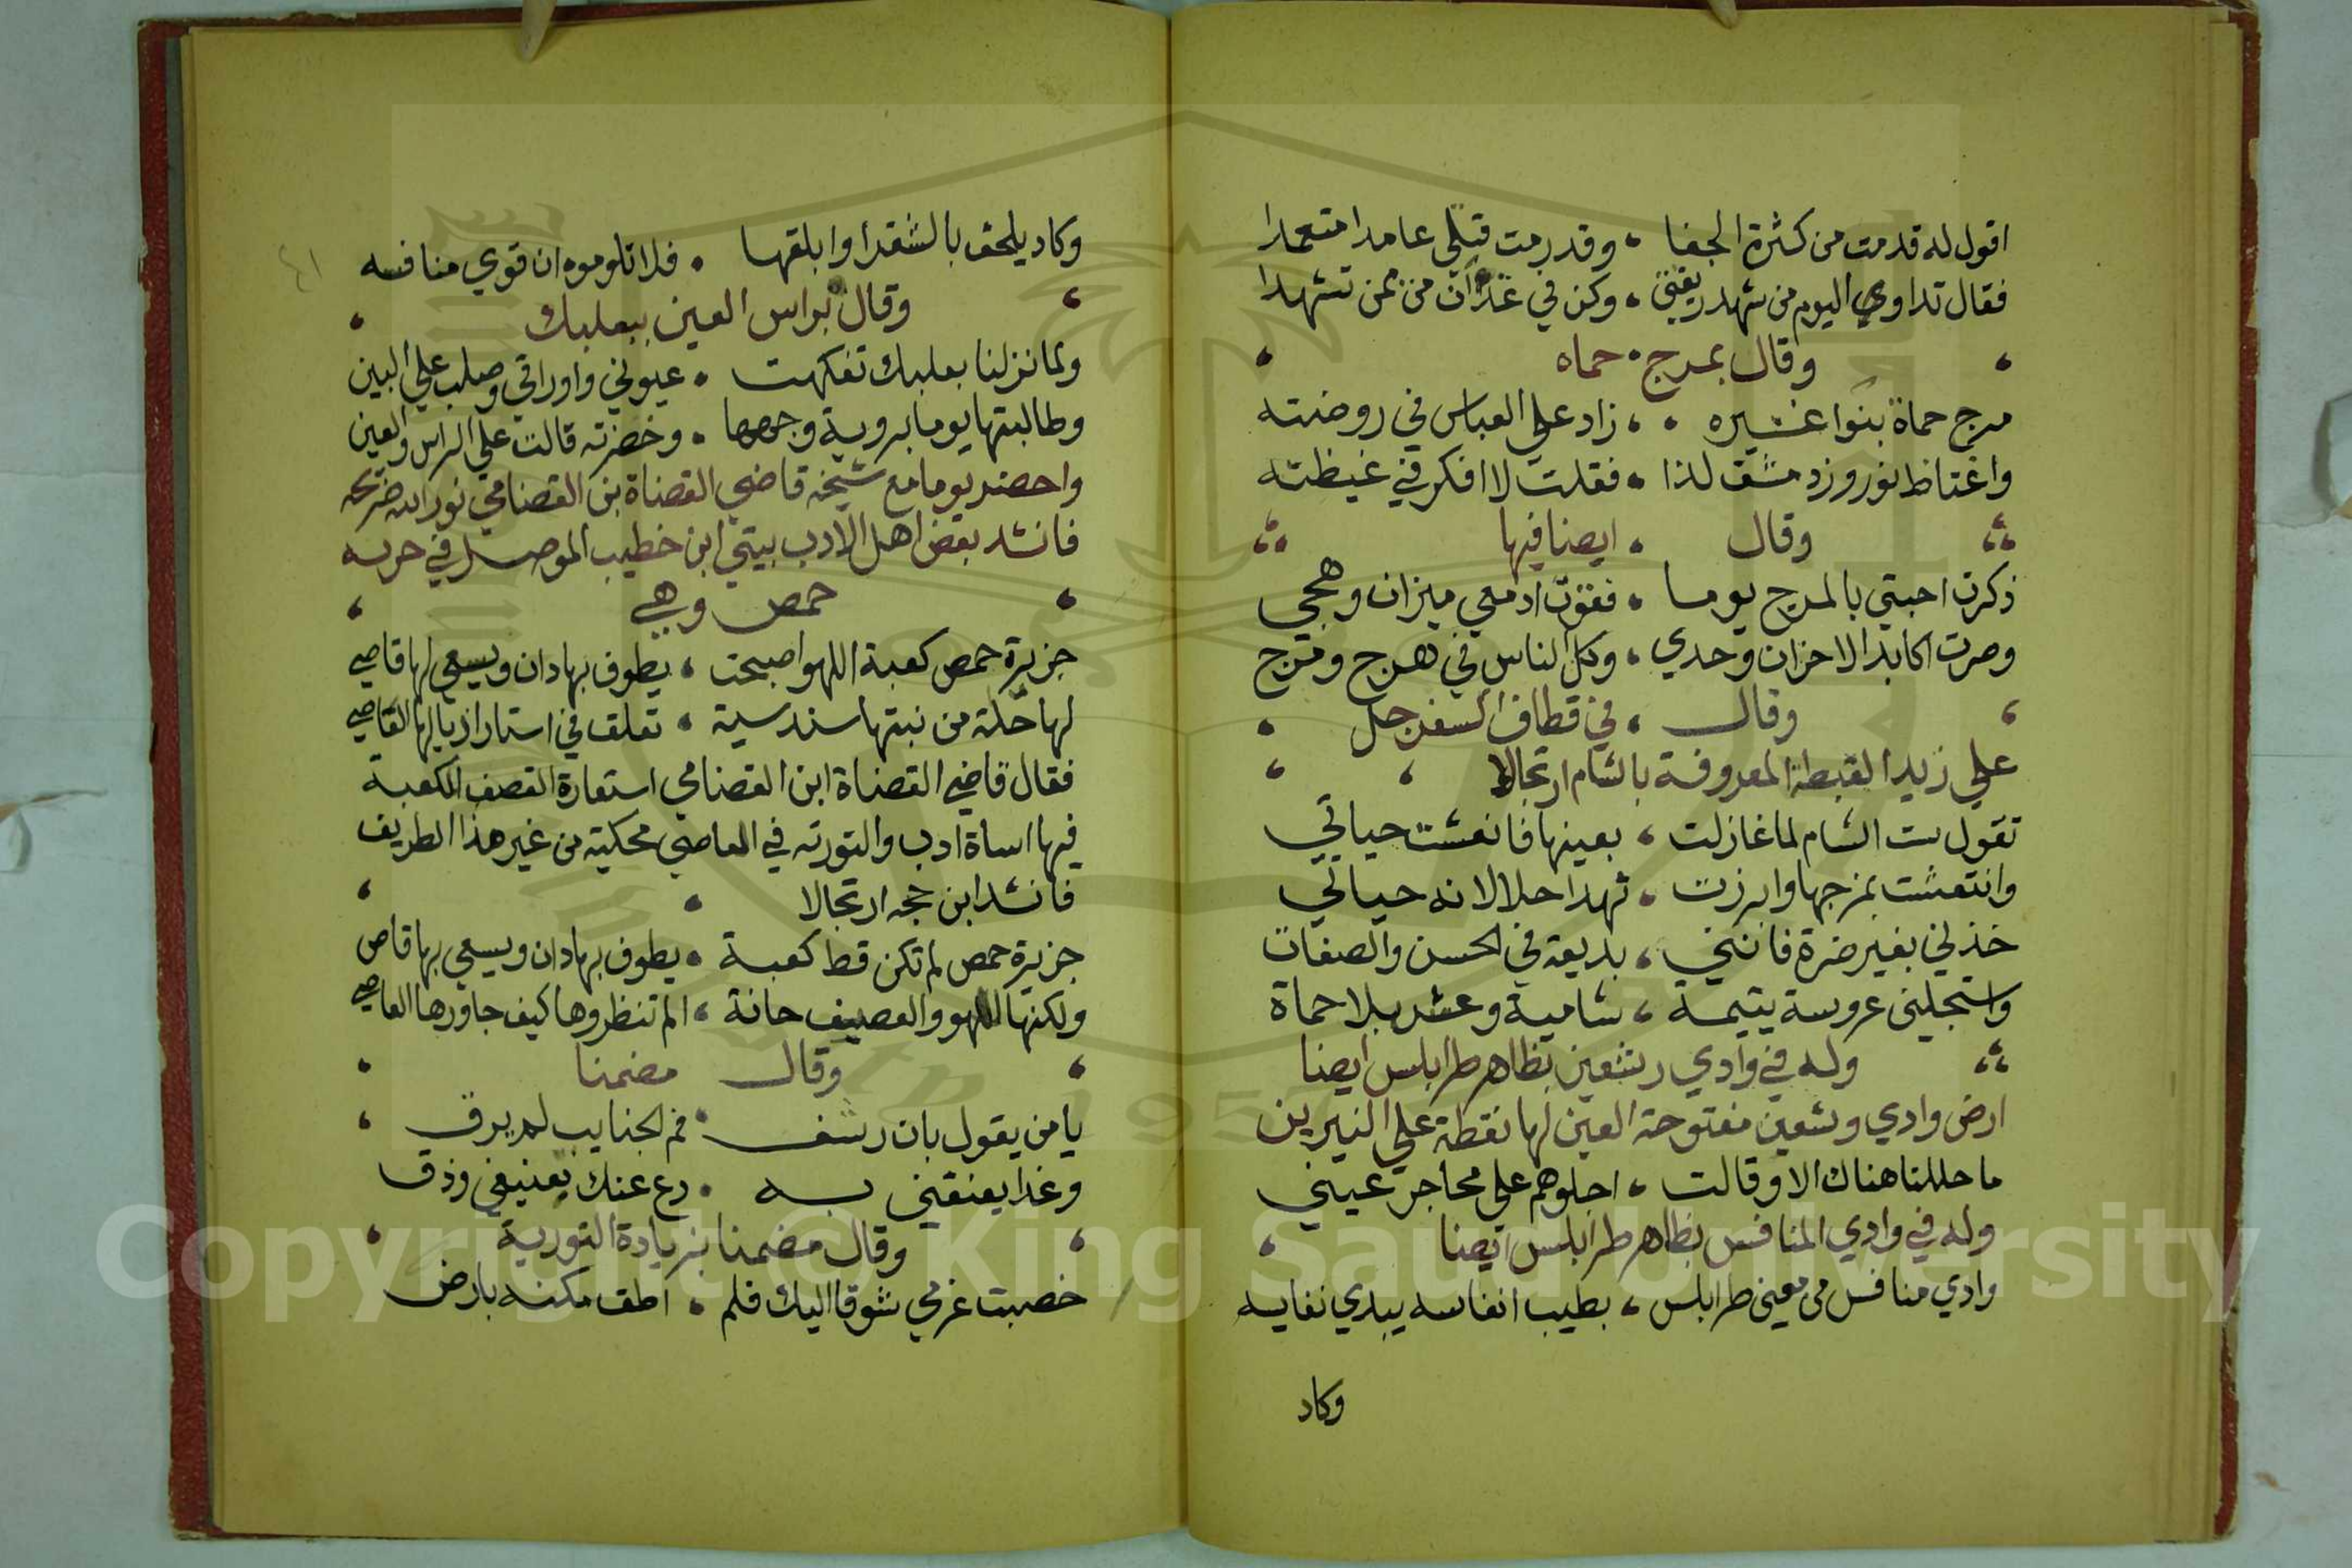 اقول له قد مت من كثرة الجفا ، وقد رمت قتلي عامدا متعمدا
فقال تداوي اليوم من شهد ريقتي ، وكن في غد آن من ممن تشهدا
وقال بمرج حماه
مرج حماة بنوا عشيره ، زاد علي العباس في روضته
واغتاظ نوروز دمشق لذا ، فقلت لا افكر في غيظته
وقال ، ايضا فيها
ذكرت احبتي بالمرج يوما ، فقوت ادمعي ميزان وهجي
وصرت اكابد الاحزان وحدي ، وكل الناس في هرج ومرج
وقال ، في قطاف السفرجل
علي زيدا لقبطة المعروفة بالشام ارتجالا
تقول ست الشام لما غازلت ، بعينها فانعشت حياتي
وانتعشت بمزجها وابرزت ، شهدا حلالا نه حياتي
خذني بغير ضرة فانني ، بديعة في الحسن والصفات
واستجلبنى عروسة يتيمة ، شامية وعشر بلا حماة
وله في وادي رشعين بظاهر طرابلس ايضا
ارض وادي وشعين مفتوحة العين لها نقطة علي النيربين
ما حللنا هناك الا وقالت ، اجلوهم على محاجر عيني
وله في وادي المنافس بظاهر طرابلس ايضا
وادي منافس مى معنى طرابلس ، بطيب انفاسه يبدي نفايسه
وكاد
٤١
وكاد يلحق بالشقرا وابلقها ، فلا تلوموه ان قوي منافسه
وقال براس العين ببعلبك
ولما نزلنا بعلبك تفكهت ، عيوني واوراقي وصلب علي البين
وطالبتها يوما بروية وجهها ، وخضرته قالت علي الراس والعين
واحضر يوما مع شيخه قاضي القضاة بن القضامي نور الله ضريحه
فانشد بعض اهل الادب بيتي ابن خطيب الموصل في حربه
حمص وهي
جزيرة حمص كعبة اللهو اصبحت ، يطوف بها دان ويسعي لها قاصي
لها حلة من نبتها سندسية ، تعلق في استار اذيالها القاصي
فقال قاضي القضاة ابن القضامي استعارة القصف الكعبة
فيها اساة ادب والتورته في العاصي محكية من غير هذا الطريف
فانشد ابن حجه ارتجالا
جزيرة حمص لم تكن قط كعبة ، يطوف بها دان ويسعي بها قاص
ولكنها اللهو والعصيف حانة ، الم تنظروها كيف جاورها العاصي
وقال مضمنا
يا من يقول بان رشف ، فم الحنايب لم يرق
وغدا يعنفني به ، دع عنك تعنيفي وذق
وقال مضمنا بزيادة التورية
خصبت غرمي شوقا اليك فلم ، اطق مكنه بارض
Copyright © King Saud University
1957